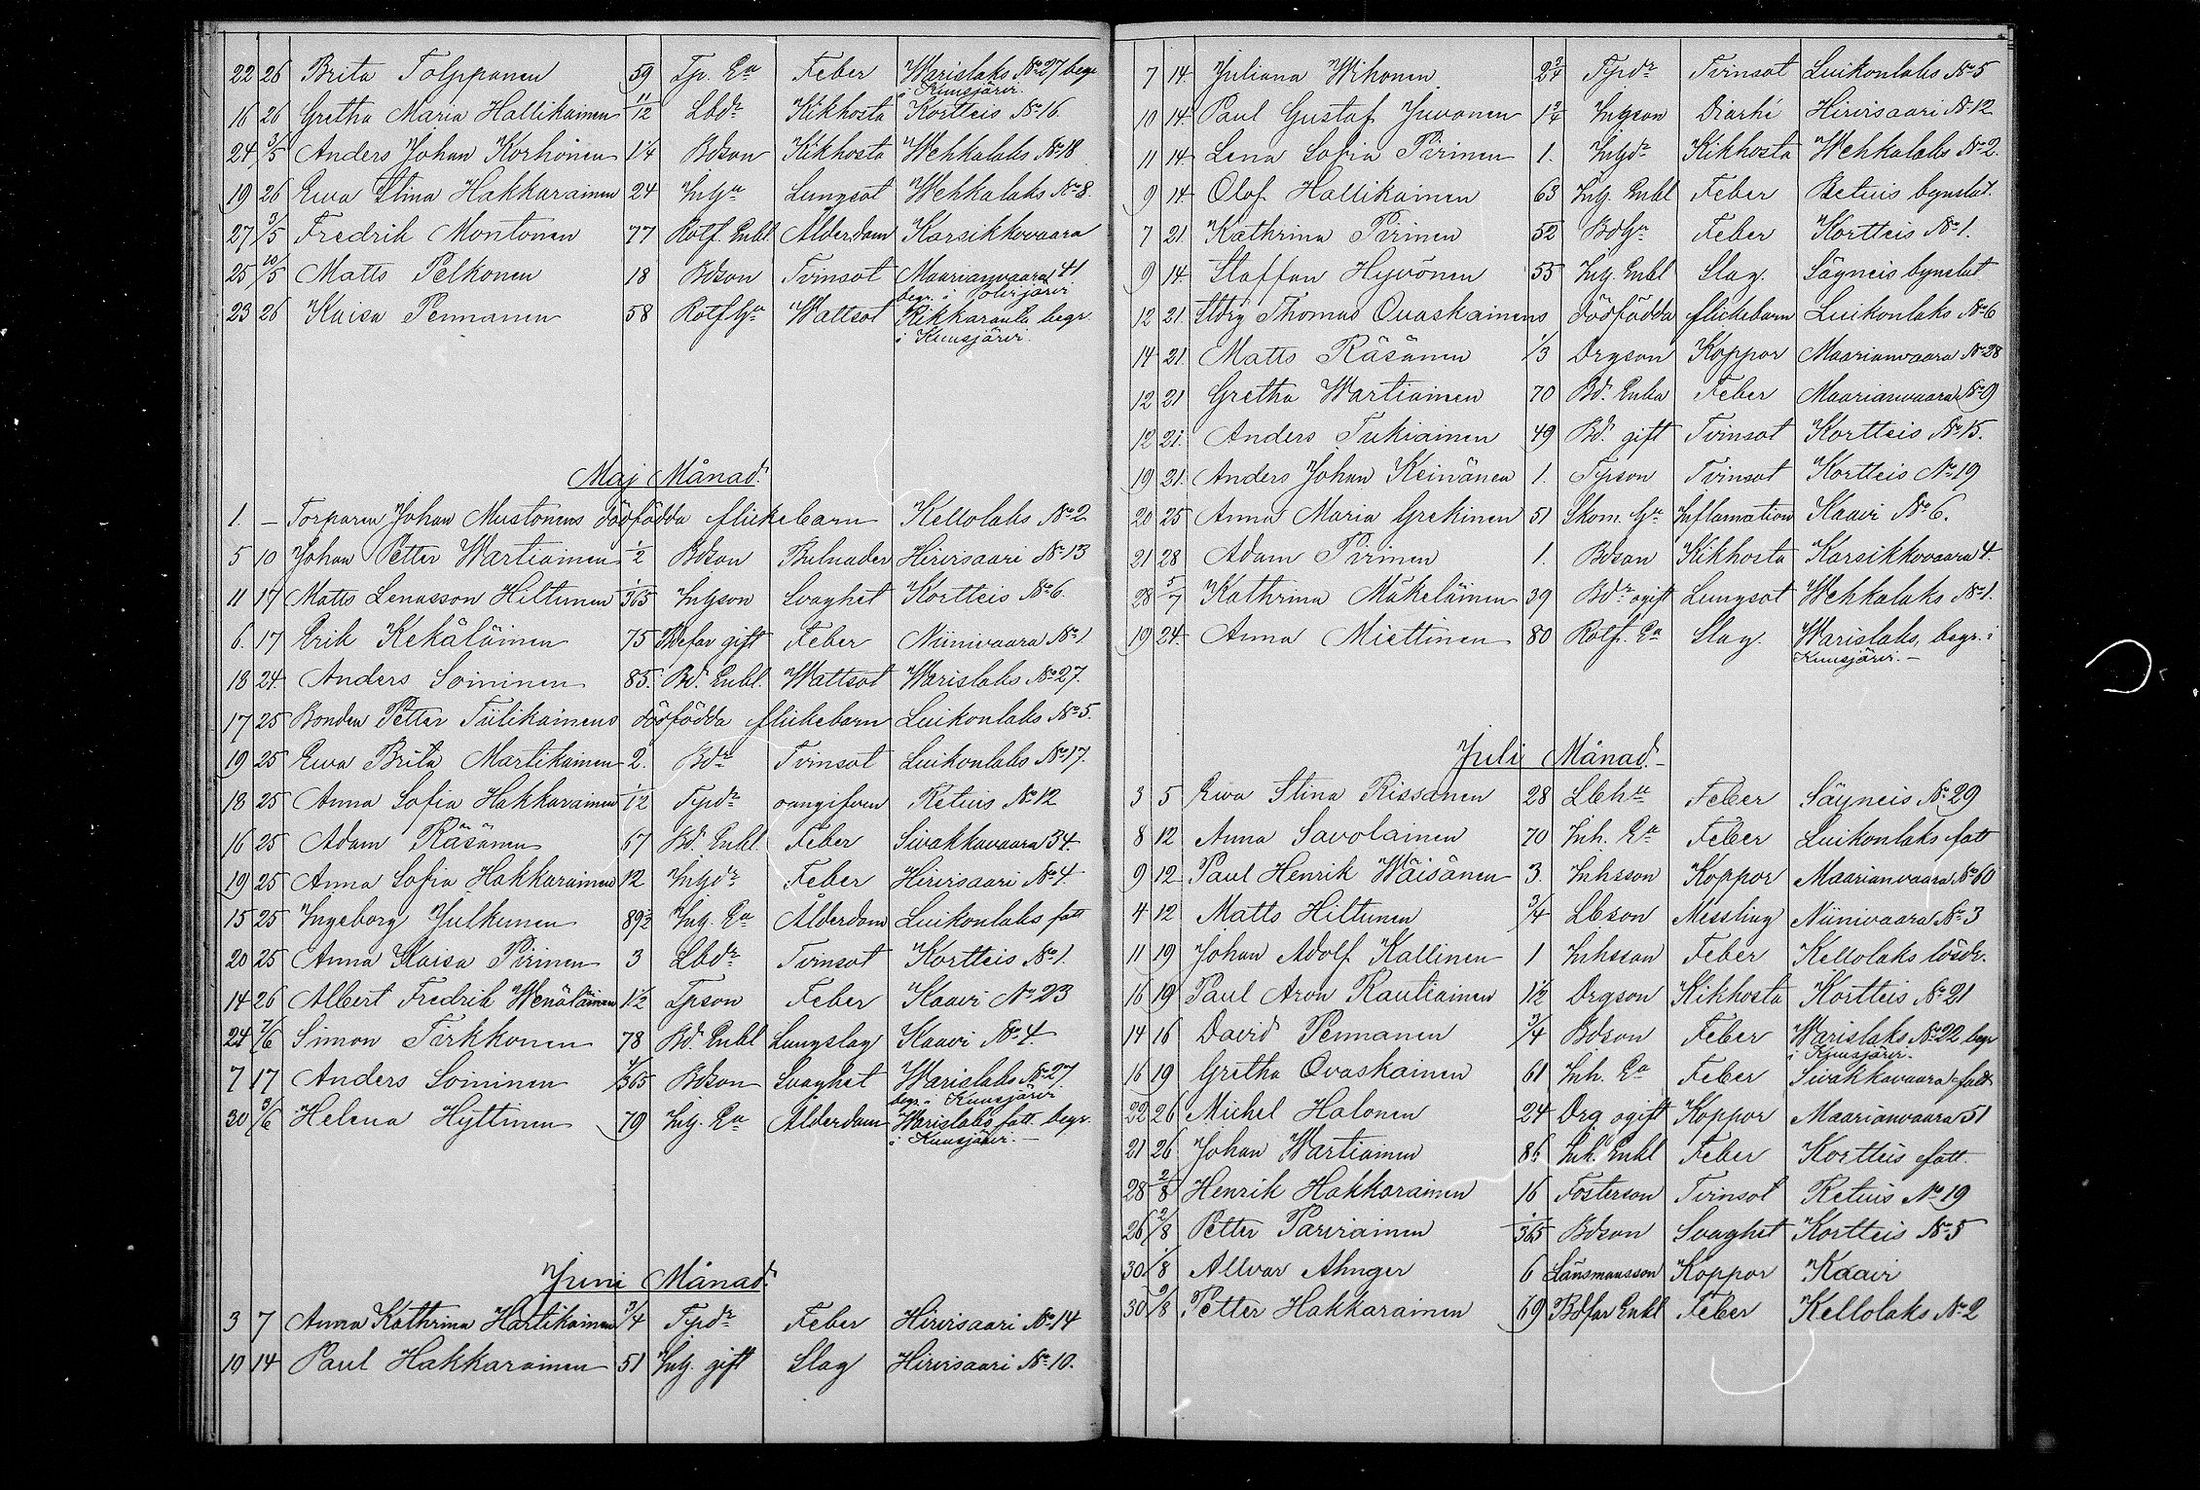 22 26 Brita Tolppanen 59 Tp. Ea Feber Warislaks No 27 begr
i Kuusjärvi.
16 26 Gretha Maria Hallikainen 11/12 Lbdr Kikhosta Kortteis No 16.
24 3/5 Anders Johan Korhonen 1 1/4 Bdson Kikhosta Wehkalaks No 18
19 26 Ewa Stina Hakkarainen 24 Lungsot Wehkalaks No 8.
27 3/5 Fredrik Montonen 77 Rotf. Enkl Ålderdom Karsikkovaara
25 10/5 Matts Pelkonen 18 Bdson Tvinsot Maarianvaara 41
begr. i Polvijärvi
23 26 Kaisa Pennanen 58 Wattsot Rikkaranta, begr.
i Kuusjärvi.
Maj Månad.
1. — Torparen Johan Mustonens dödfödda flickebarn Kellolaks No 2
5 10 Johan Petter Wartiainen 1/2 Bdson Bulnader Hirvisaari No 13
11 17 Matts Lenasson Hiltunen 1/365 Inhson Svaghet Kortteis No 6.
6. 17 Erik Kekäläinen 75 Bdefar gift Feber Niinivaara No 1
18 24 Anders Soininen 85. Bd. Enkl. Wattsot Warislaks No 27.
17 25 Bonden Petter Tiilikainens dödfödda flickebarn Luikonlaks No 5.
19 25 Ewa Brita Martikainen 2. Bdr Tvinsot Luikonlaks No 17.
18 25 Anna Sofia Hakkarainen 1/12 Tpdr oangifven Retuis No 12
16 25 Adam Räsänen 67 Bd. Enkl Feber Sivakkavaara 34.
19 25 Anna Sofia Hakkarainen 12 Inhdr Feber Hirvisaari No 4.
15 25 Ingeborg Julkunen 89 1/2 Inh. Ea Ålderdom Luikonlaks fatt
20 25 Anna Kaisa Pirinen 3 Lbdr Tvinsot Kortteis No 1.
14 26 Albert Fredrik Wenäläinen 1 1/2 Tpson Feber Kaavi No 23
24 7/6 Simon Tirkkonen 78 Bd. Enkl Lungslag Kaavi No 4.
7 17 Anders Soininen 4/365 Bdson Svaghet Warislaks No 27.
begr. i Kuusjärvi
30 3/6 Helena Hyttinen 79 Inh. Ea Ålderdom Warislaks fatt. begr.
i Kuusjärvi. —
Juni Månad.
3 7 Anna Kathrina Hartikainen 3/4 Tpdr Feber Hirvisaari No 14
10 14 Paul Hakkarainen 51 Inh. gift Slag Hirvisaari No 10.
7 14. Juliana Wihonen 2 3/4 Tpdr Tvinsot Luikonlaks No 5
10 14. Paul Gustaf Juvonen Inhson Diarhé Hirvisaari No 12
11 14 Lena Sofia Pirinen 1. Inhdr Kikhosta Wehkalaks No 2.
9 14. Olof Hallikainen 63 Inh. Enkl Feber Retuis bynslut.
7 21. Kathrina Pirinen 52 Feber Kortteis No 1.
9 14. Staffan Hyvönen 55 Inh. Enkl Slag. Säyneis bynslut
12 21. Thomas Ovaskainens dödfödda flickebarn Luikonlaks No 6
14 21 Matts Räsänen 1/3 Drgson Koppor Maarianvaara No 28
12 21 Gretha Wartiainen 70 Bd. Enka Feber Maarianvaara No 9
12 21. Anders Tukiainen 49 Bd. gift Tvinsot Kortteis No 15.
19 21. Anders Johan Keinänen 1. Tpson Tvinsot Kortteis No 19
20 25 Anna Maria Grekinen 51 Skom. Inflamation Kaavi No 6.
21 28 Adam Pirinen 1. Bdson Kikhosta Karsikkovaara 4.
28 5/7 Kathrina Mäkeläinen 39 Bdr ogift Lungsot Wehkalaks No 1.
19 24. Anna Miettinen 80 Rotf. Ea Slag. Warislaks, begr. i
Kuusjärvi. —
Juli Månad. —
3 5 Ewa Stina Rissanen 28 Feber Säyneis No 29
8 12 Anna Savolainen 70 Inh. Ea Feber Luikonlaks fatt
9 12 Paul Henrik Wäisänen 3. Inhsson Koppor Maarianvaara No 60
4 12 Matts Hiltunen 3/4 Lbson Messling Niinivaara No 3
11 19 Johan Adolf Kallinen 1 Inhsson Feber Kellolaks lösdr.
16 19 Paul Aron Rautiainen 1 1/2 Drgson Kikhosta Kortteis No 21
14 16 David Pennanen 3/4 Bdson Feber Warislaks No 22 begr
i Kuusjärvi.
16 19 Gretha Ovaskainen 61 Inh. Ea Feber Sivakkavaara fatt
22 26 Michel Halonen 24 Drg ogift Koppor Maarianvaara 51
21 26 Johan Wartiainen 86 Inh. Enkl Feber Kortteis fatt.
28 2/8 Henrik Hakkarainen 16 Fosterson Tvinsot Retuis No 19
26 2/8 Petter Parviainen 1/365 Bdson Svaghet Kortteis No 5
30 1/8 Allvar Ahnger 6 Länsmansson Koppor Kaavi
30 9/8 Petter Hakkarainen 69 Bdfar Enkl Feber Kellolaks No 2